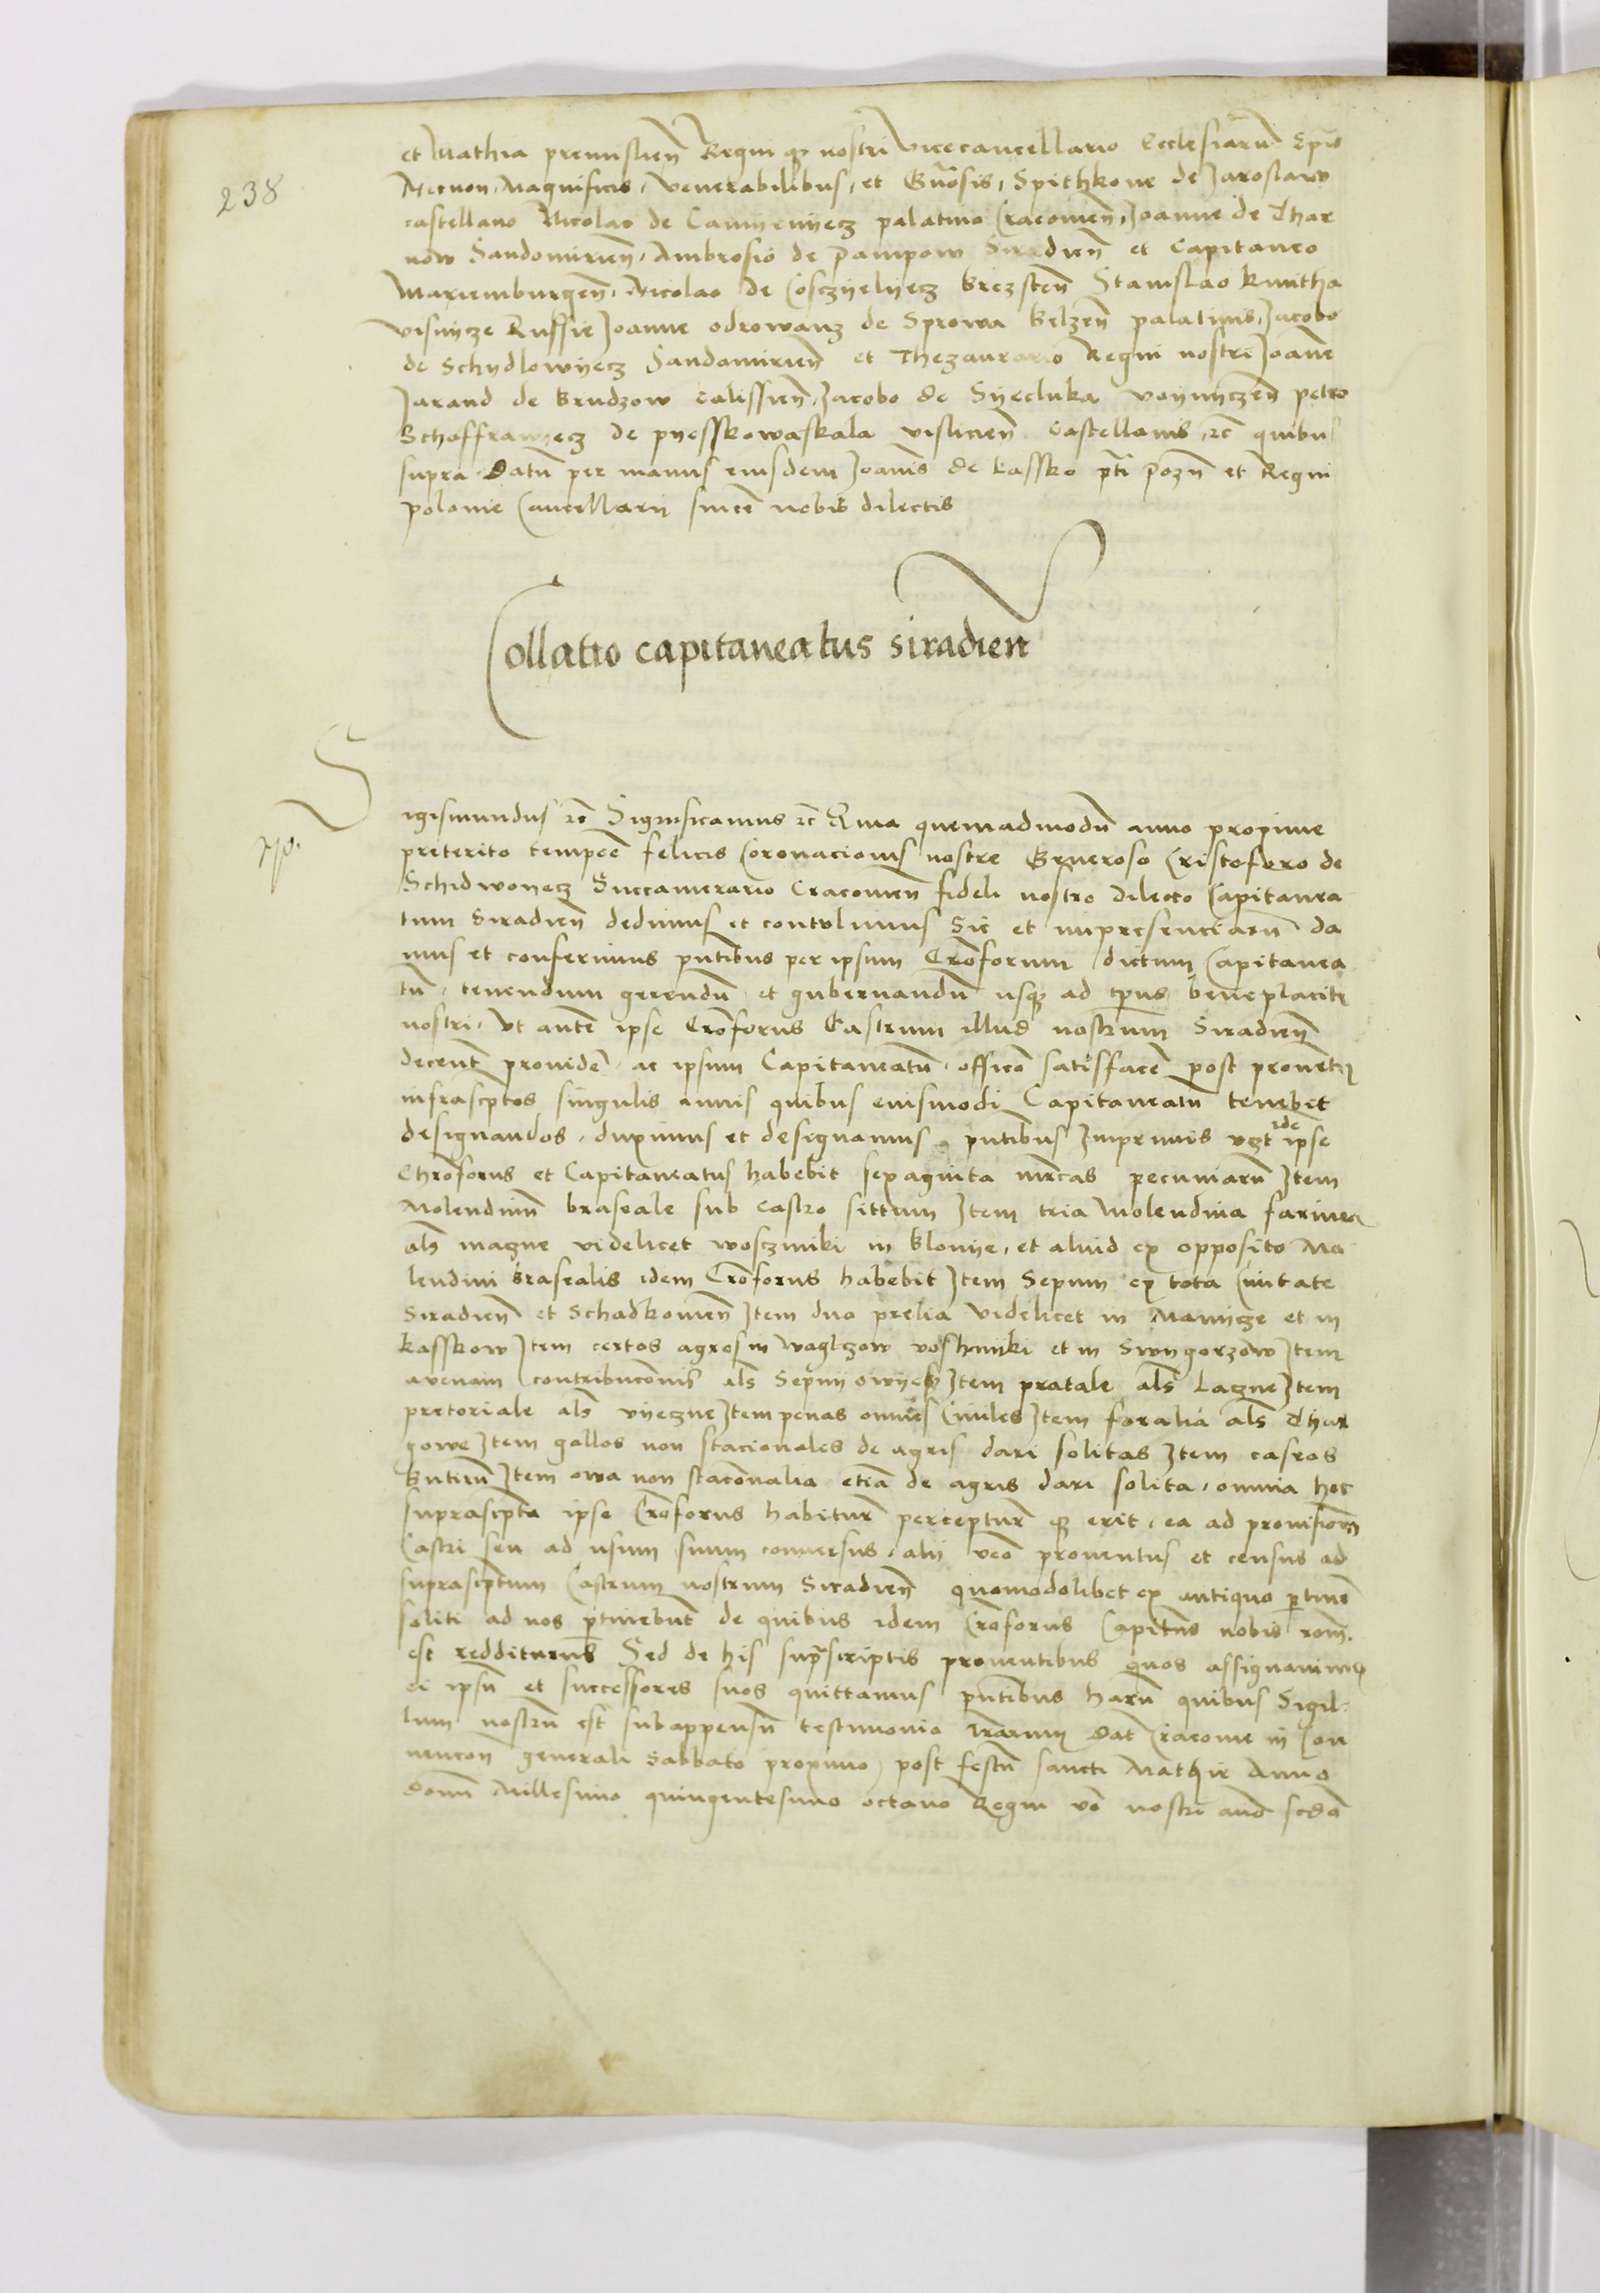 238
et Mathia premislien̄ Regni q̨ nostri vicecancellario Ecclesiarum Ep̄is
Necnon, Magnificis, Venerabilibus, et Gn̄osis, Spithkone de Jaroslaw
castellano Nicolao de Camyenyecz palatino Cracovien̄, Joanne de Thar
now Sandomirien̄, Ambrosio de Pampow Siradien̄ et Capitaneo
Mariemburgen̄, Nicolao de Cosczyelyecz Brzesten̄ Stanislao Kmitha
visnycze Russie Joanne odrowanz de Sprowa Belzen̄ palatinis, Jacobo
de Schydlowyecz Sandomirien̄ et Thezaurario Regni nostri Joan̄e
Jarand de Brudzow Calissien̄, Jacobo de Syecluka voynyczen̄ petro
Schaffranyecz de pyesskowaskala vislicien̄ Castellanis, rc̄ quibus
supra Datū per manus eiusdem Joan̄is de Lassko p̄ti Pozn̄ et Regni
polonie Cancellarii sincē nobis dilectis
Collatio capitaneatus siradien
Sigismundus rc̄ Significamus rc̄ Quia quemadmodū anno proxime
preterito tempōe felicis Coronacionis nostre Generoso Cristofero de
Schidwonecz Succamerario Cracovien̄ fideli nostro dilecto Capitanea
tum Siradien̄ dedimus et contulimus Sic et inpresenciarū da
mus et conferimus pn̄tibus per ipsum Crōforum dictum Capitanea
tū, tenendum gerendū et gubernandū usq̨ ad tp̄us beneplaciti
nostri, Ut autē ipse Crōforus Castrum illud nostrum Siradien̄
decent̄ providē, ac ipsum Capitaneatū, officio satisfacē post provent̄
infrascptos singulis annis quibus eiusmodi Capitaneatū tenebit
designandos, duximus et designamus pn̄tibus Inprimis vz̄t idē ipse
Chrōforus et Capitaneatus habebit sexaginta mrcas pecuniarū Item
Molendinū braseale sub Castro sittum Item tria Molendina farinea
al̄s maczne videlicet wosczniki in Klonye, et aliud ex opposito Mo
lendini brasealis idem Crōforus habebit Item Sepum ex tota Civitate
Siradien̄ et Schadkovien̄ Item duo prelia videlicet in Mamycze et in
Kasskow Item certos agros in waglczow voshniki et in Swyngorzow Item
avenam contribucōnis al̄s Sepny owyes Item pratale al̄s Laczne Item
pretoriale al̄s vyeczne Item penas omnes Civiles Item foralia al̄s Thar
gowe Item gallos non stacionales de agris dari solitas Item caseos
butirū Item owa non stacōnalia etiā de agris dari solita, omnia hec
suprascpta ipse Crōforus habitur̄ percepturꝰ q̨ erit, ea ad provisionē
Castri seu ad usum suum conversus, alii vēo proventus et census ad
suprascptum Castrum nostrum Siradien̄ quomodolibet ex antiquo p̄tinē
soliti ad nos p̄tinebunt de quibus idem Crōforus Capitn̄s nobis rōm.
est redditurus Sed de his suprascriptis proventibus quos assignavimus
ei ipsū et successores suos quittamus pn̄tibus harū quibus Sigil-
lum nostrū est subappensū testimonio lr̄arum Dat̄ Cracovie in Con
vencōn generali Sabbato proximo, post festū sancti Mathie Anno
Domī Millesimo quingentesimo octavo Regni vō nostri anō scdō